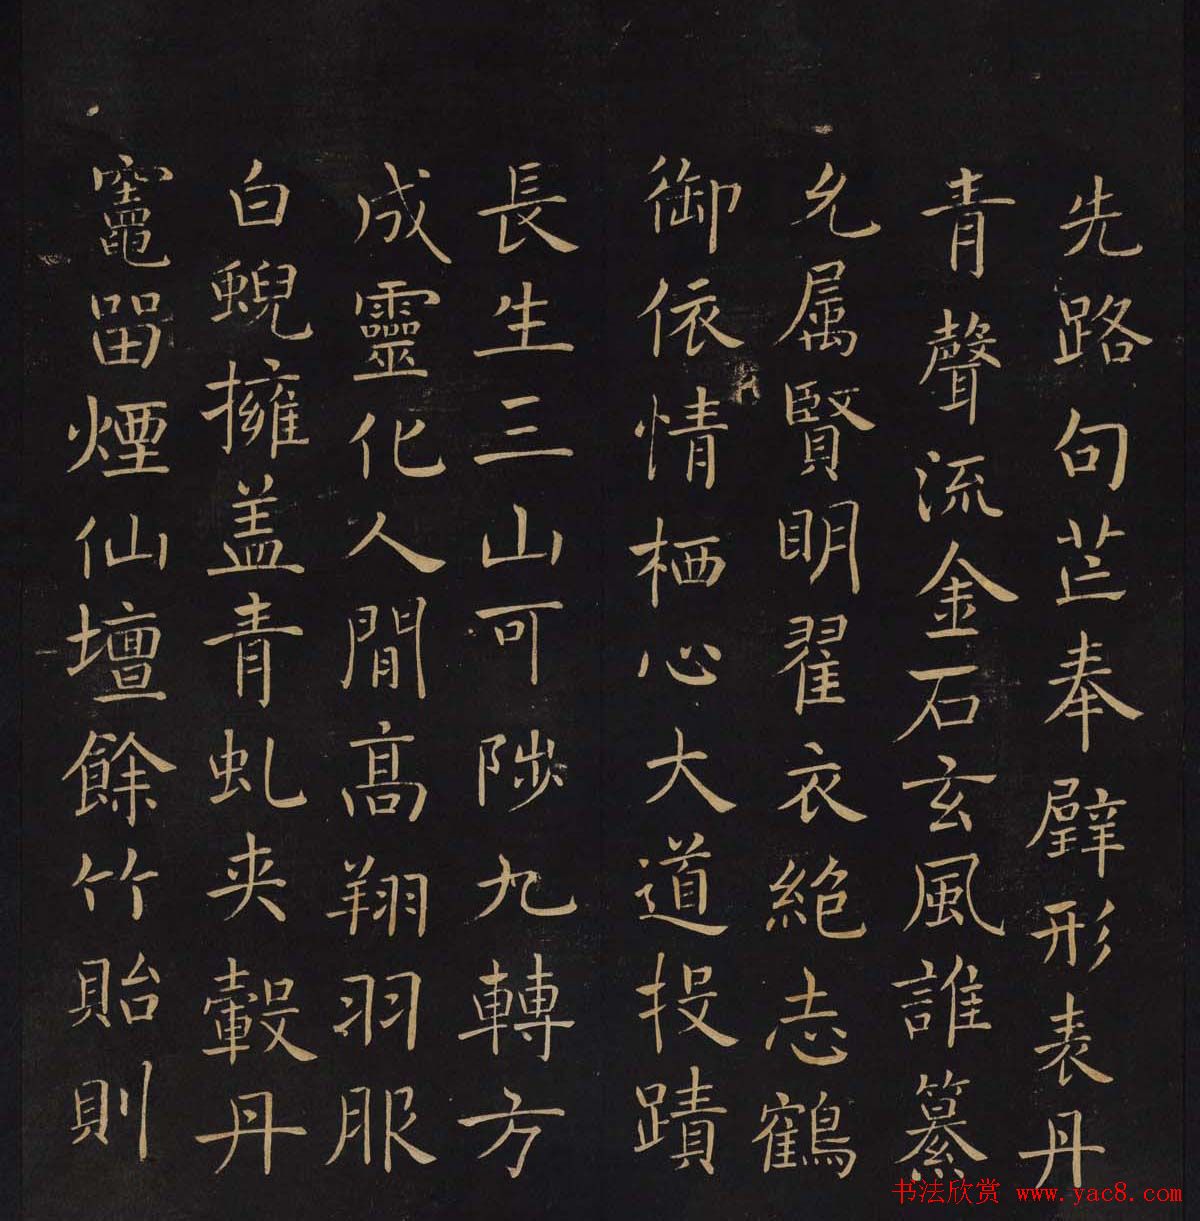 先路句芒奉璧形表丹
青聲流金石玄風誰纂
允属賢明翟衣絶志鶴
御依情栖心大道投蹟
長生三山可陟九轉方
成靈化人間髙翔羽服
白蜺擁盖青虬夹轂丹
竈留煙仙壇餘竹貽則
书法欣赏 www.yac8.com